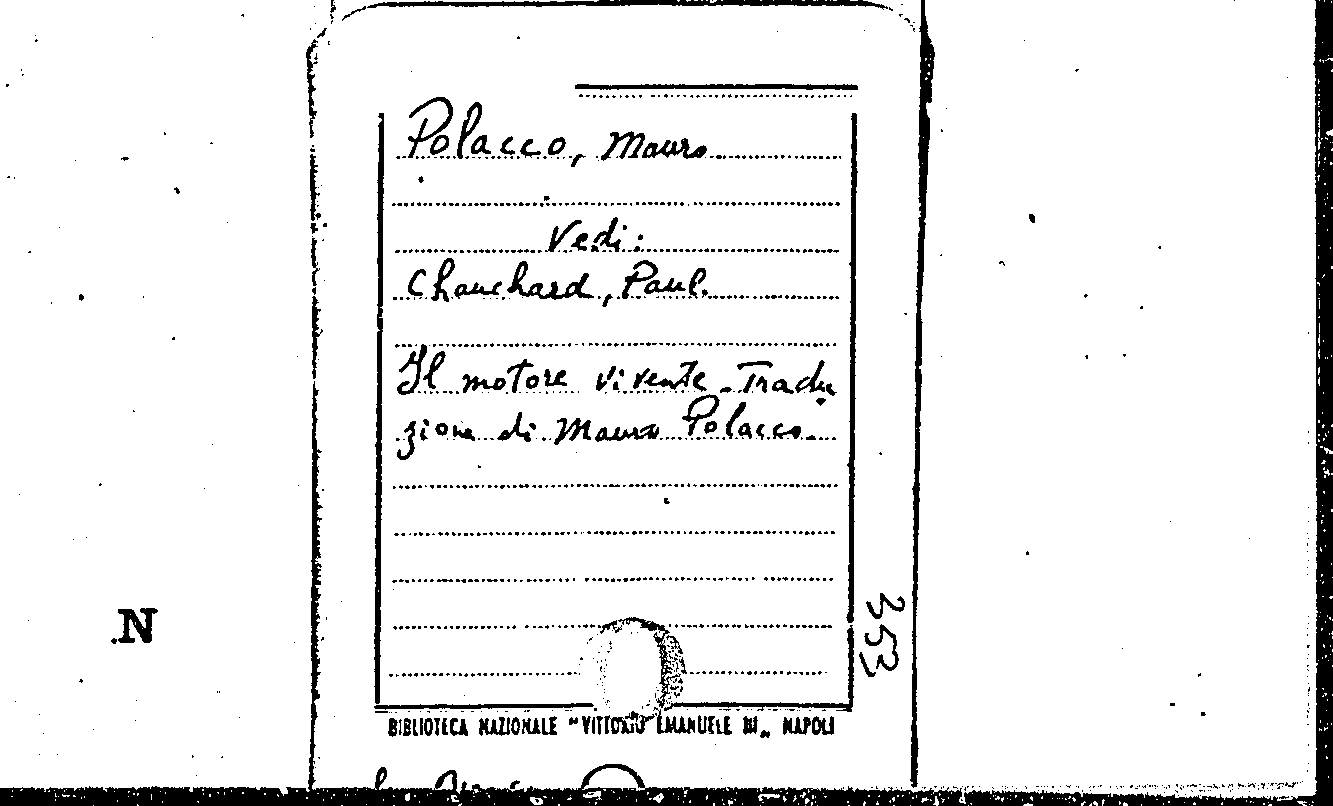 Polacco, Mauro
Vedi:
Chauchard, Paul.
Il motore vivente. Tradu
zione di Mauro Polacco.
353
N
BIBLIOTECA NAZIONALE "VITTORIO EMANUELE III" NAPOLI